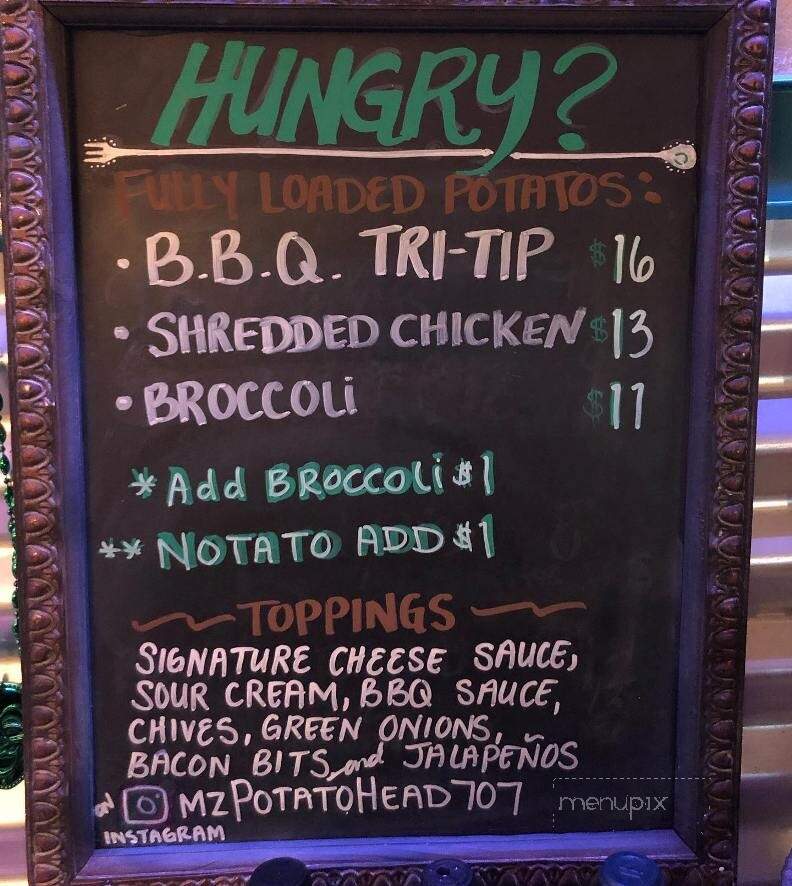 HUNGRY?
FULLY LOADED POTATOS:
• B.B.Q. TRI-TIP $16
• SHREDDED CHICKEN $13
• BROCCOLi $11
* Add BROCCOLi $1
** NOTATO ADD $1
~ TOPPINGS ~
SIGNATURE CHEESE SAUCE,
SOUR CREAM, BBQ SAUCE,
CHIVES, GREEN ONIONS,
BACON BITS and JALAPEÑOS
ON MZPOTATOHEAD707
INSTAGRAM
menupix